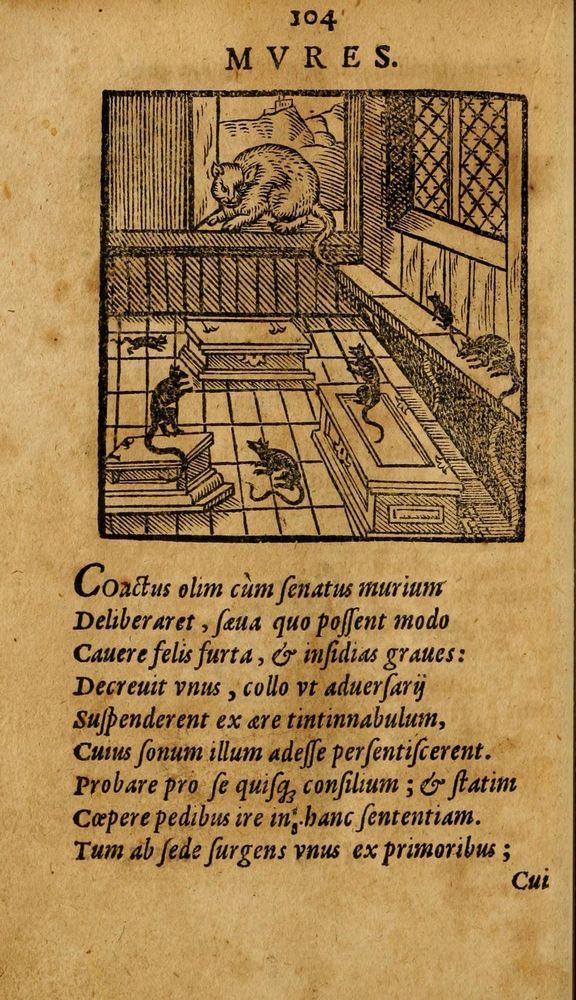 104
MVRES.
Coactus olim cùm ſenatus murium
Deliberaret, ſæua quo poſſent modo
Cauere felis furta, & inſidias graues:
Decreuit vnus, collo vt aduerſarij
Suſpenderent ex ære tintinnabulum,
Cuius ſonum illum adeſſe perſentiſcerent.
Probare pro ſe quiſq; conſilium; & ſtatim
Cœpere pedibus ire in hanc ſententiam.
Tum ab ſede ſurgens vnus ex primoribus;
Cui